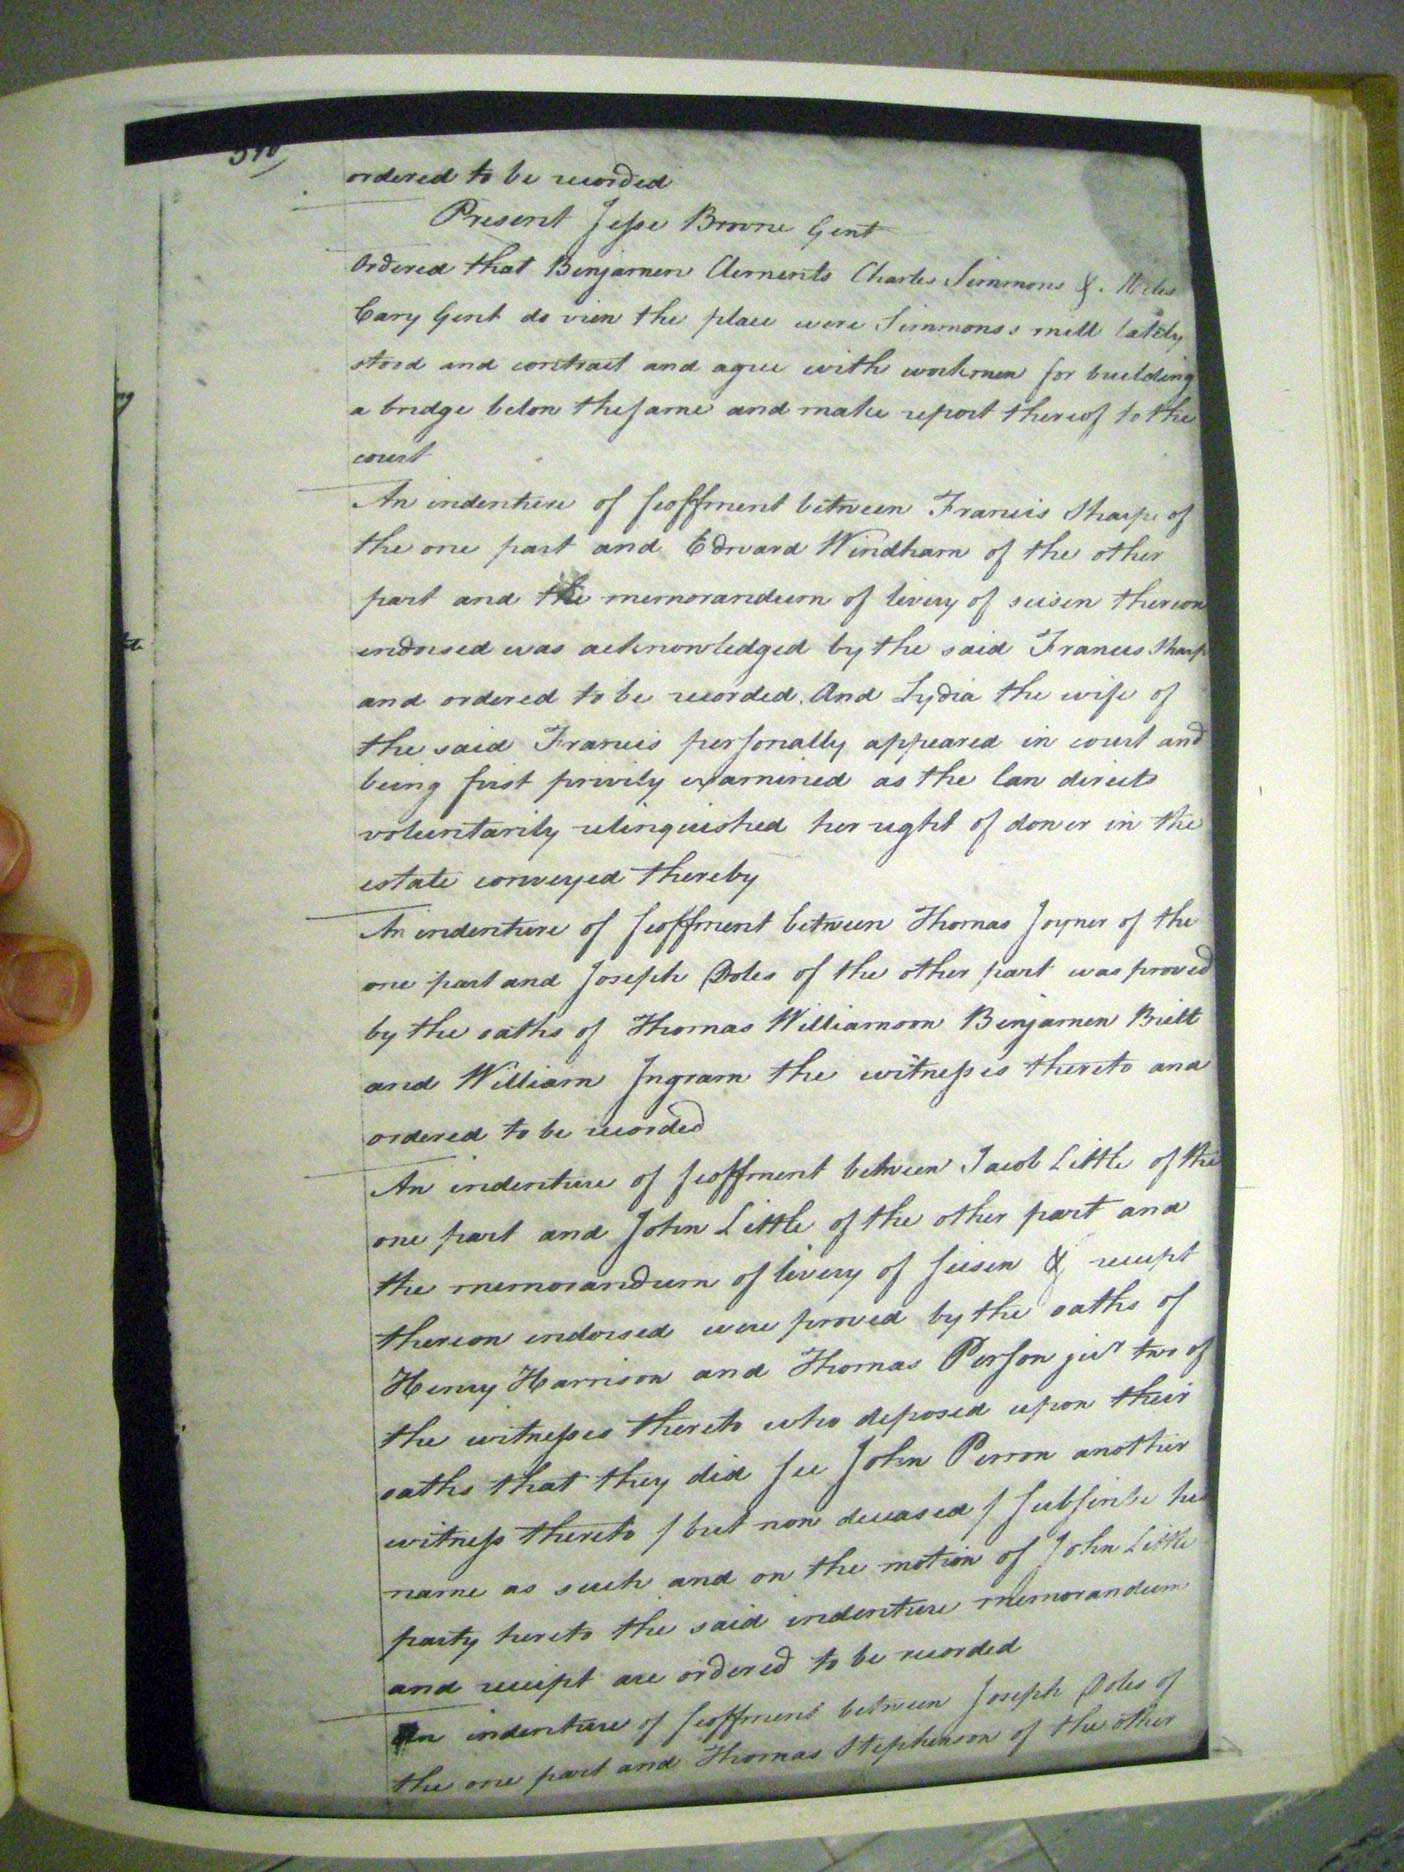 ordered to be recorded
Present Jesse Browne Gent
Ordered that Benjamen Clements Charles Simmons & Miles
Cary Gent do view the place were Simmons's mill lately
stood and contract and agree with workmen for building
a bridge below the same and make report thereof to the
court
An indenture of feoffment between Francis Sharpe of
the one part and Edward Windham of the other
part and the memorandum of livery of seisen thereon
endorsed was acknowledged by the said Francis Sharp
and ordered to be recorded. And Lydia the wife of
the said Francis personally appeared in court and
being first privily examined as the law directs
voluntarily relinquished her right of dower in the
estate conveyed thereby
An indenture of feoffment between Thomas Joyner of the
one part and Joseph Doles of the other part was proved
by the oaths of Thomas Williamson Benjamen Britt
and William Ingram the witnesses thereto and
ordered to be recorded
An indenture of feoffment between Jacob Little of the
one part and John Little of the other part and
the memorandum of livery of seisen & receipt
thereon endorsed were proved by the oaths of
Henry Harrison and Thomas Person junr two of
the witnesses thereto who deposed upon their
oaths that they did see John Person another
witness thereto / but now deceased / subscribe his
name as such and on the motion of John Little
party hereto the said indenture memorandum
and receipt are ordered to be recorded
An indenture of feoffment between Joseph Doles of
the one part and Thomas Stephenson of the other